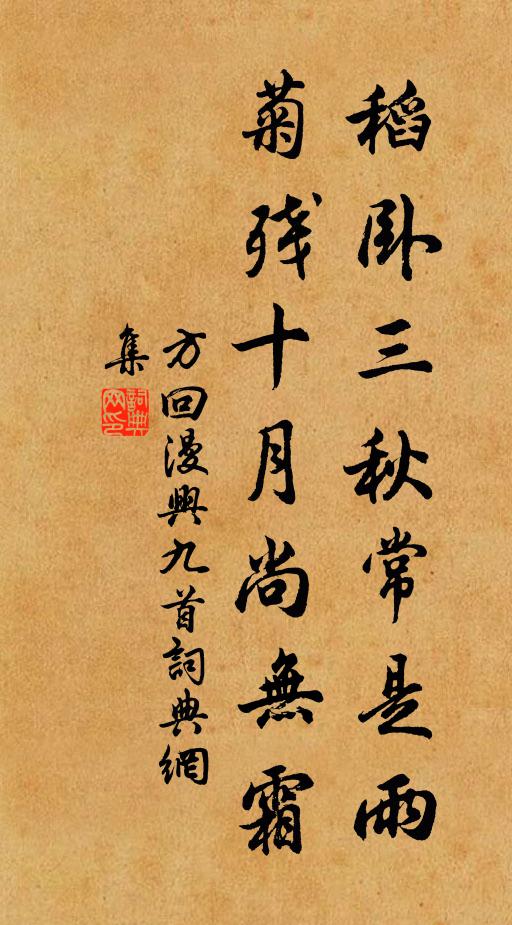 稻卧三秋常是雨
菊残十月尚無霜
方回漫興九首詞典網
集
詞典網印